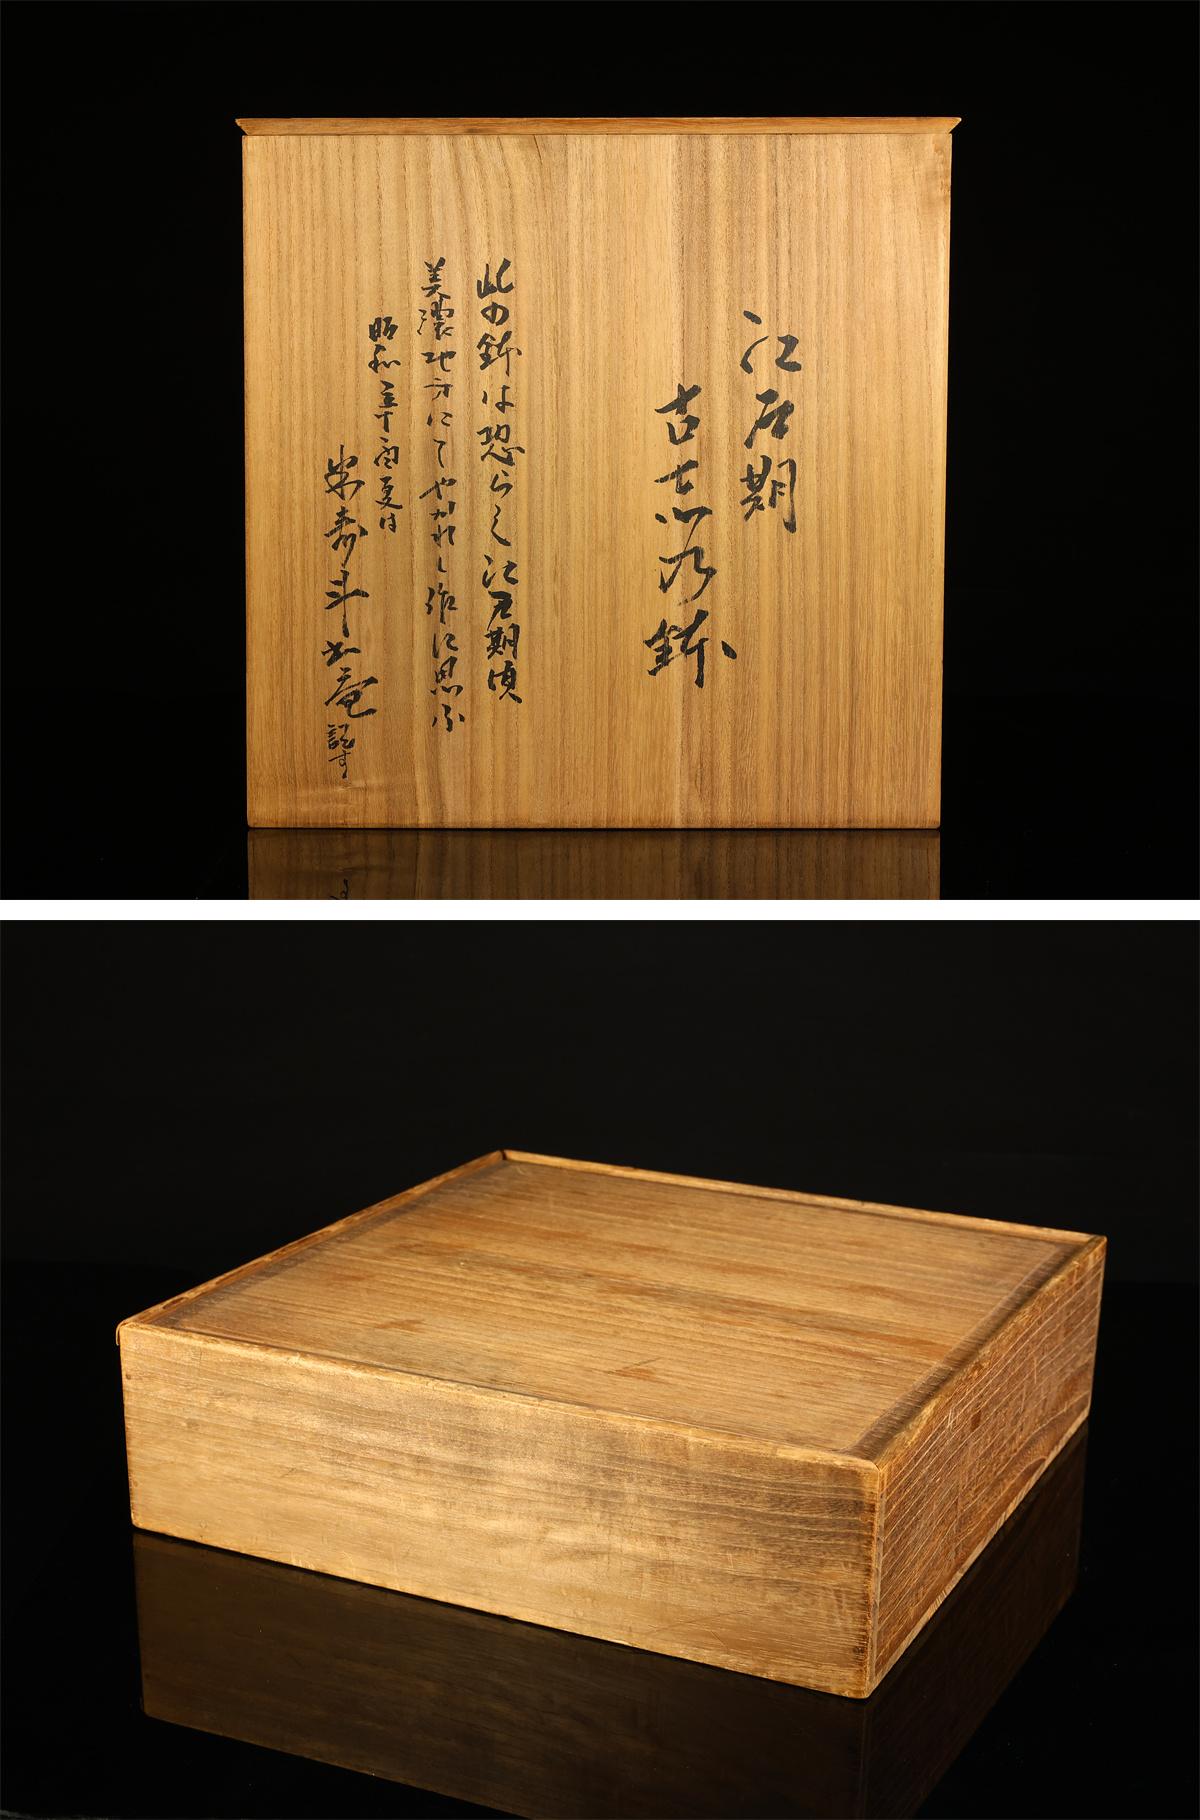 江戸期
古志乃鉢
此の鉢は恐らく江戸期頃
美濃地方にてやかれし作に思ふ
昭和五十酉夏日
米寿斗出庵 記す